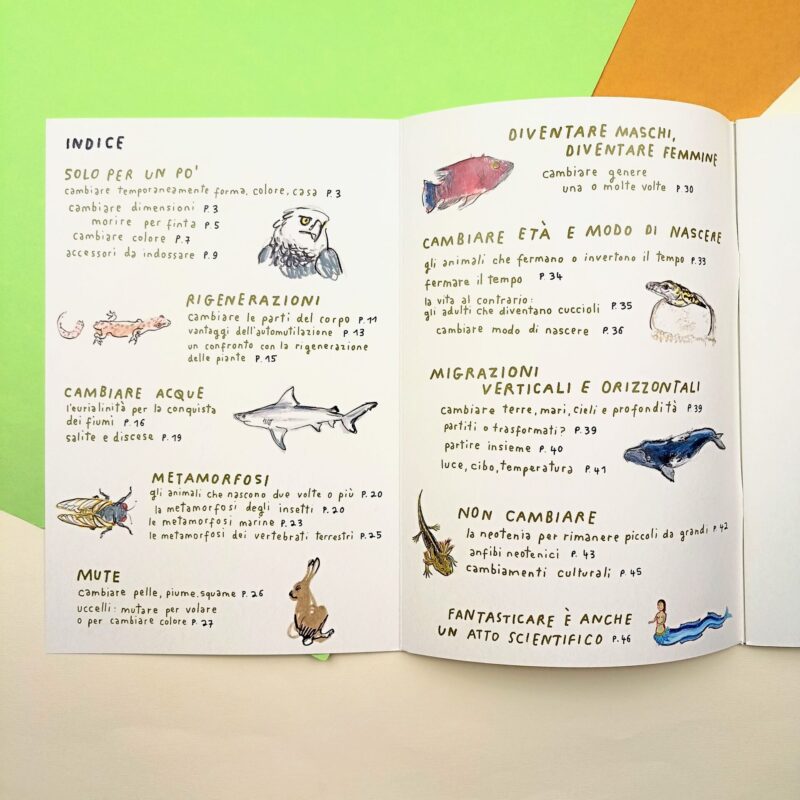 INDICE
SOLO PER UN PO'
cambiare temporaneamente forma, colore, casa P.3
cambiare dimensioni P.3
morire per finta P.5
cambiare colore P.7
accessori da indossare P.9
RIGENERAZIONI
cambiare le parti del corpo P.11
vantaggi dell'automutilazione P.13
un confronto con la rigenerazione
delle piante P.15
CAMBIARE ACQUE
l'eurialinità per la conquista
dei fiumi P.16
salite e discese P.19
METAMORFOSI
gli animali che nascono due volte o più P.20
la metamorfosi degli insetti P.20
le metamorfosi marine P.23
le metamorfosi dei vertebrati terrestri P.25
MUTE
cambiare pelle, piume, squame P.26
uccelli: mutare per volare
o per cambiare colore P.27
DIVENTARE MASCHI,
DIVENTARE FEMMINE
cambiare genere
una o molte volte P.30
CAMBIARE ETÀ E MODO DI NASCERE
gli animali che fermano o invertono il tempo P.33
fermare il tempo P.34
la vita al contrario:
gli adulti che diventano cuccioli P.35
cambiare modo di nascere P.36
MIGRAZIONI
VERTICALI E ORIZZONTALI
cambiare terre, mari, cieli e profondità P.39
partiti o trasformati? P.39
partire insieme P.40
luce, cibo, temperatura P.41
NON CAMBIARE
la neotenia per rimanere piccoli da grandi P.42
anfibi neotenici P.43
cambiamenti culturali P.45
FANTASTICARE È ANCHE
UN ATTO SCIENTIFICO P.46